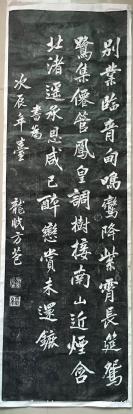 别業臨青甸鳴鸞降紫霄長筵鵷
鷺集僊管鳳皇調樹接南山近煙含
北渚遥承恩咸已醉戀賞未還鑣
書為
辰年臺
龍眠方苞